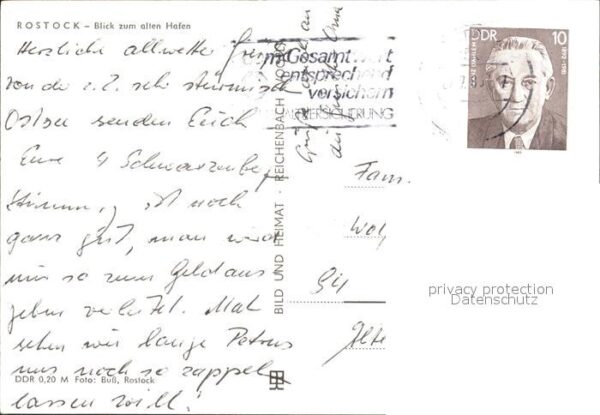 ROSTOCK – Blick zum alten Hafen
Herzliche allwetter
von der z. Z. sehr stürmisch
Ostsee senden Euch
Eure 4 Schwarzenberg
Stimmung ist noch
ganz gut, man wird
nur so zum Geld aus
geben verleitet. Mal
sehen wie lange Petrus
uns noch so zappeln
lassen will!
DDR 0,20 M Foto: Buß, Rostock
BILD UND HEIMAT · REICHENBACH
Gesamtwert
entsprechend
versichern
VERSICHERUNG
DDR 10
Fam.
94
privacy protection
Datenschutz